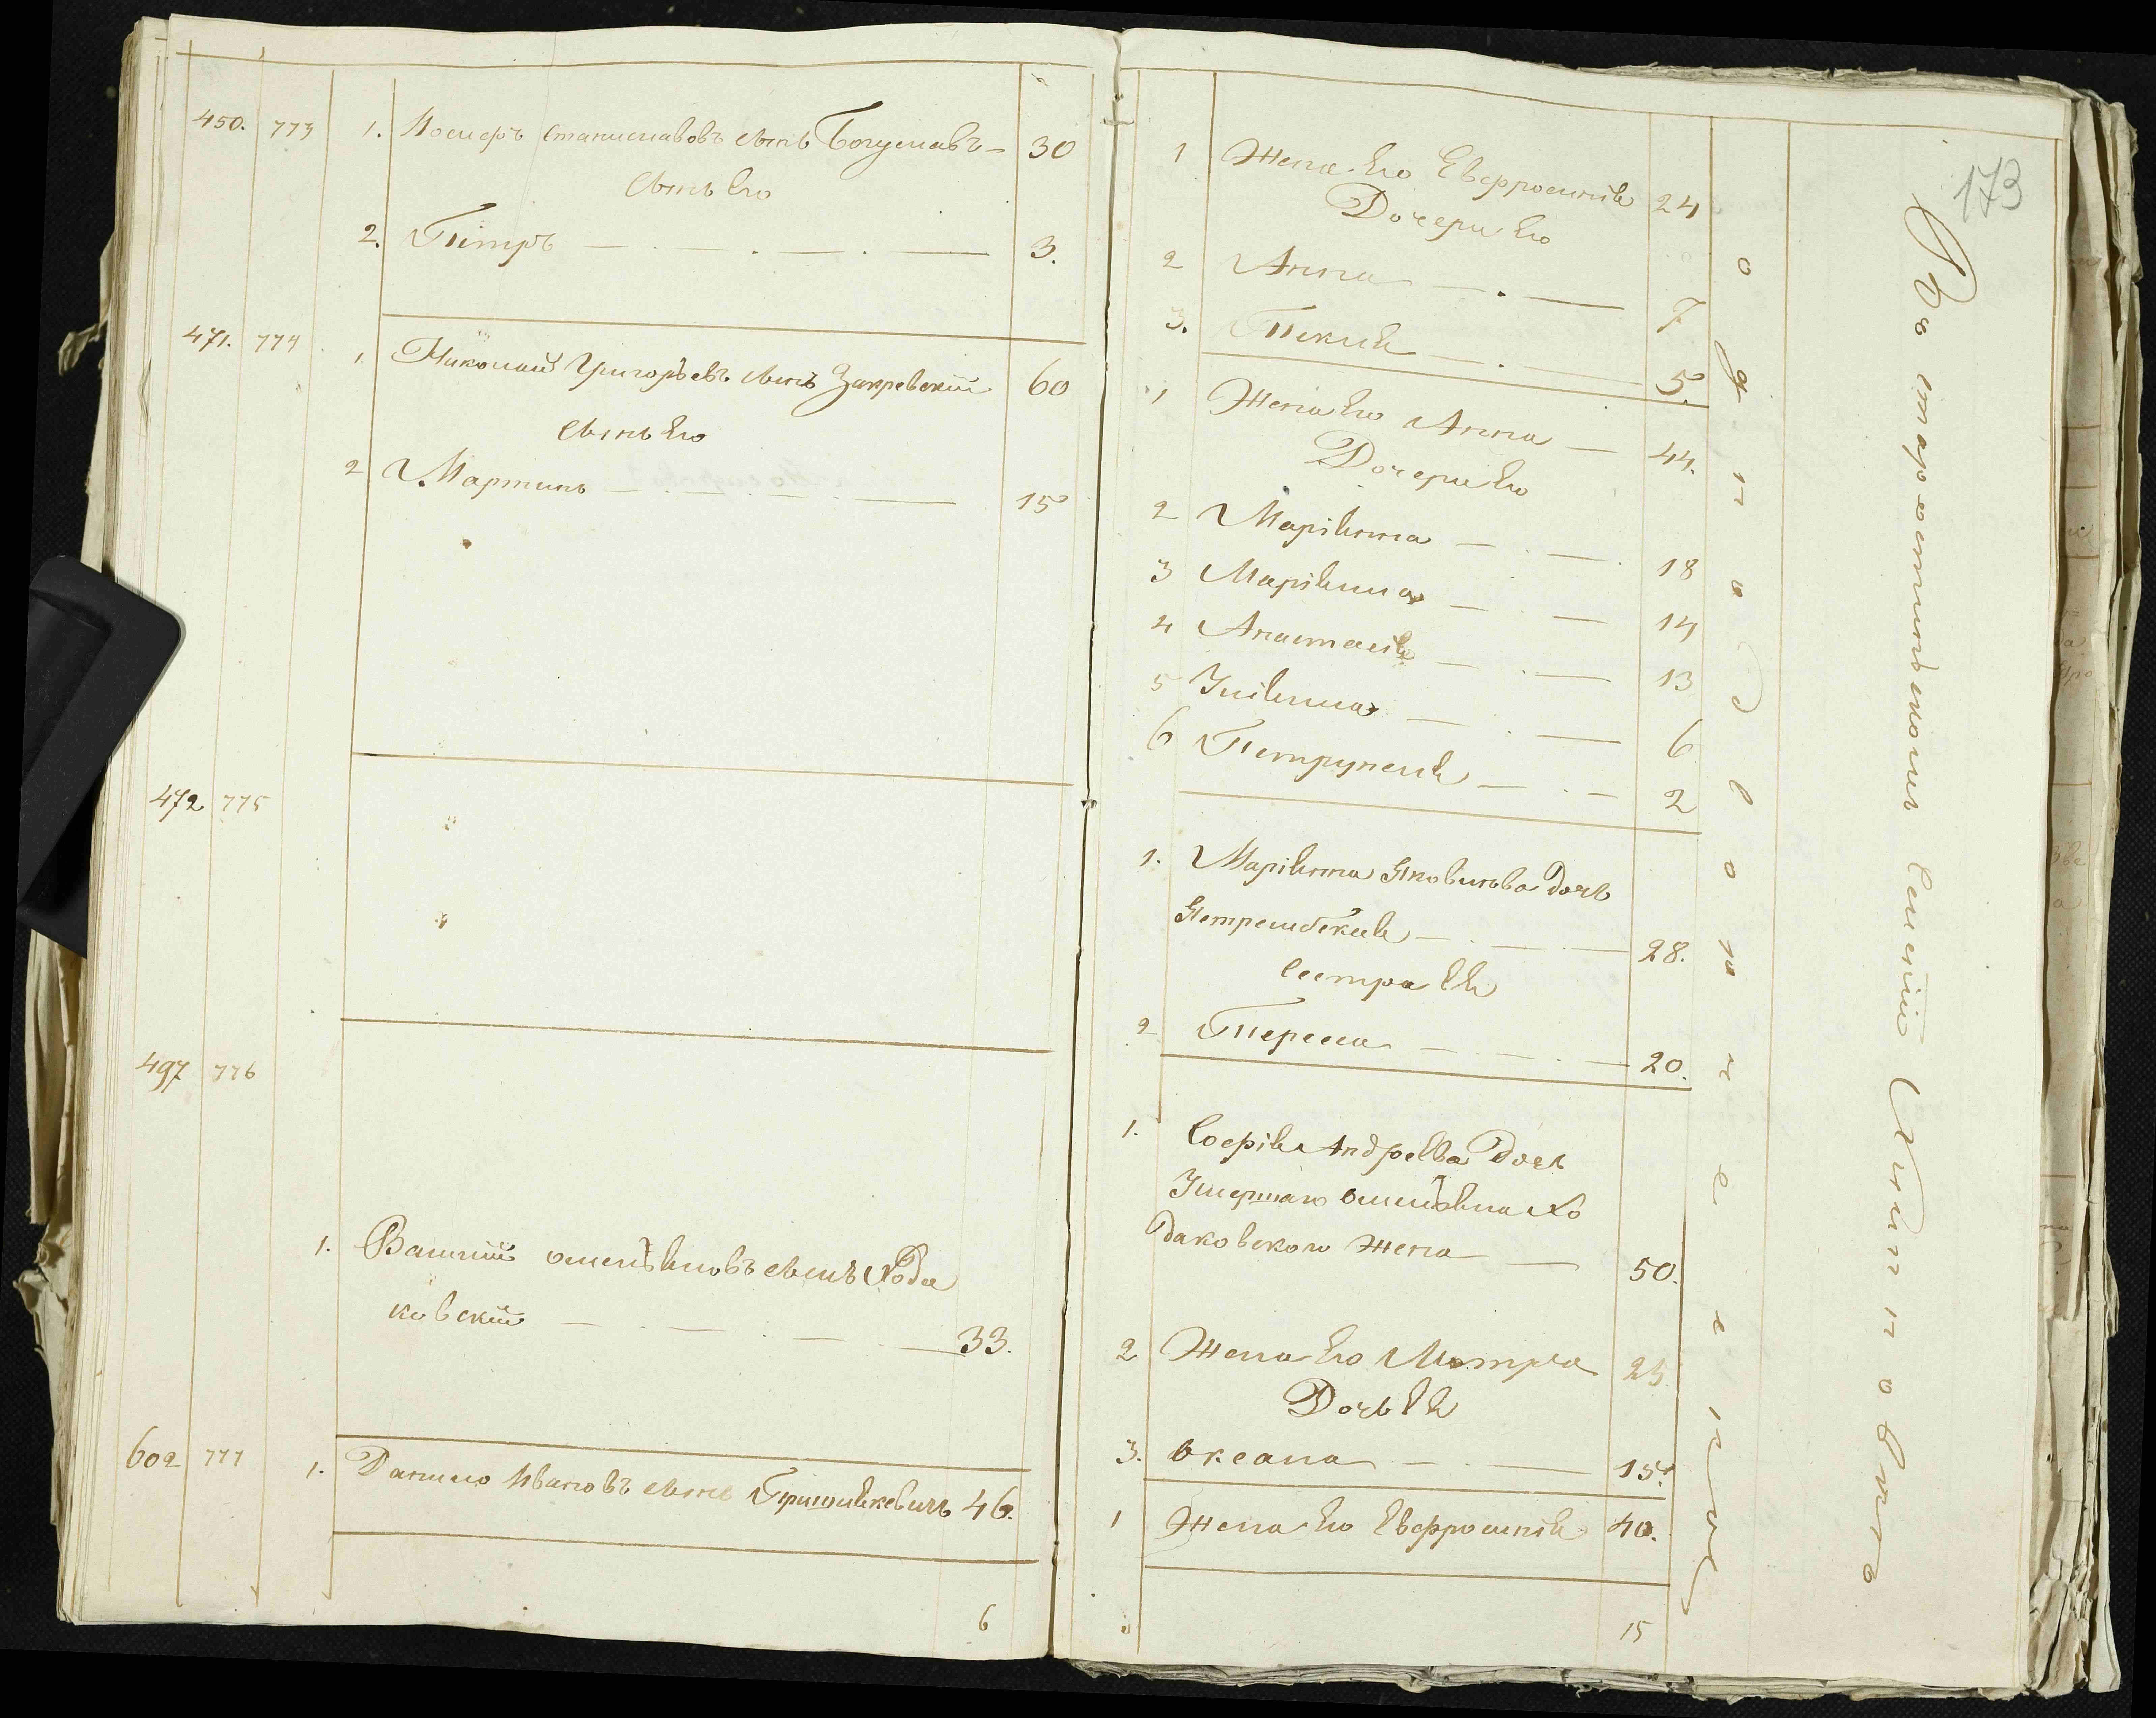 450. 773 1. Иосифъ Станиславовъ сынъ Богуславъ- 30
сынъ Его
2. Петръ 3.
471. 774 1. Николай Григорьевъ сынъ Закревскій 60
сынъ Его
2 Мартинъ 15
472 775
497 776
1. Василій Омельяновъ сынъ Хода
ковскій 33.
602 777 1. Данило Ивановъ сынъ 46.
6
173
1 Жена Его Евфросинія 24
Дочери Его
2 Анна 7
3. Текля 5.
1 Жена Его Анна 44.
Дочери Его
2 Маріянна 18
3 Маріянна 14
4 Анастасія 13
5 Уліянна 6
6 Петрунеля 2
1. Маріянна Яковлѣва дочь
28.
Сестра Ея
2 Тересса 20.
1. Софія Андреева Дочь
Умершаго Омельяна Хо
даковскаго Жена 50.
2 Жена Его Мотря 25.
Дочь Ея
3. Оксана 15.
1 Жена Его Евфросинія 40.
15
однодворческое
Въ старостинскомъ Селеніи